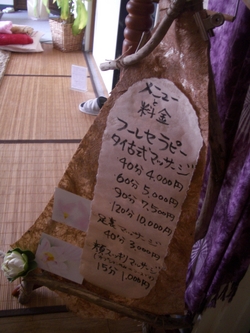 メニュー
と
料金
フーレセラピー
タイ古式マッサージ
40分 4.000円
60分 5.000円
90分 7.500円
120分 10.000円
マッサージ
40分 3.000円
15分 1.000円